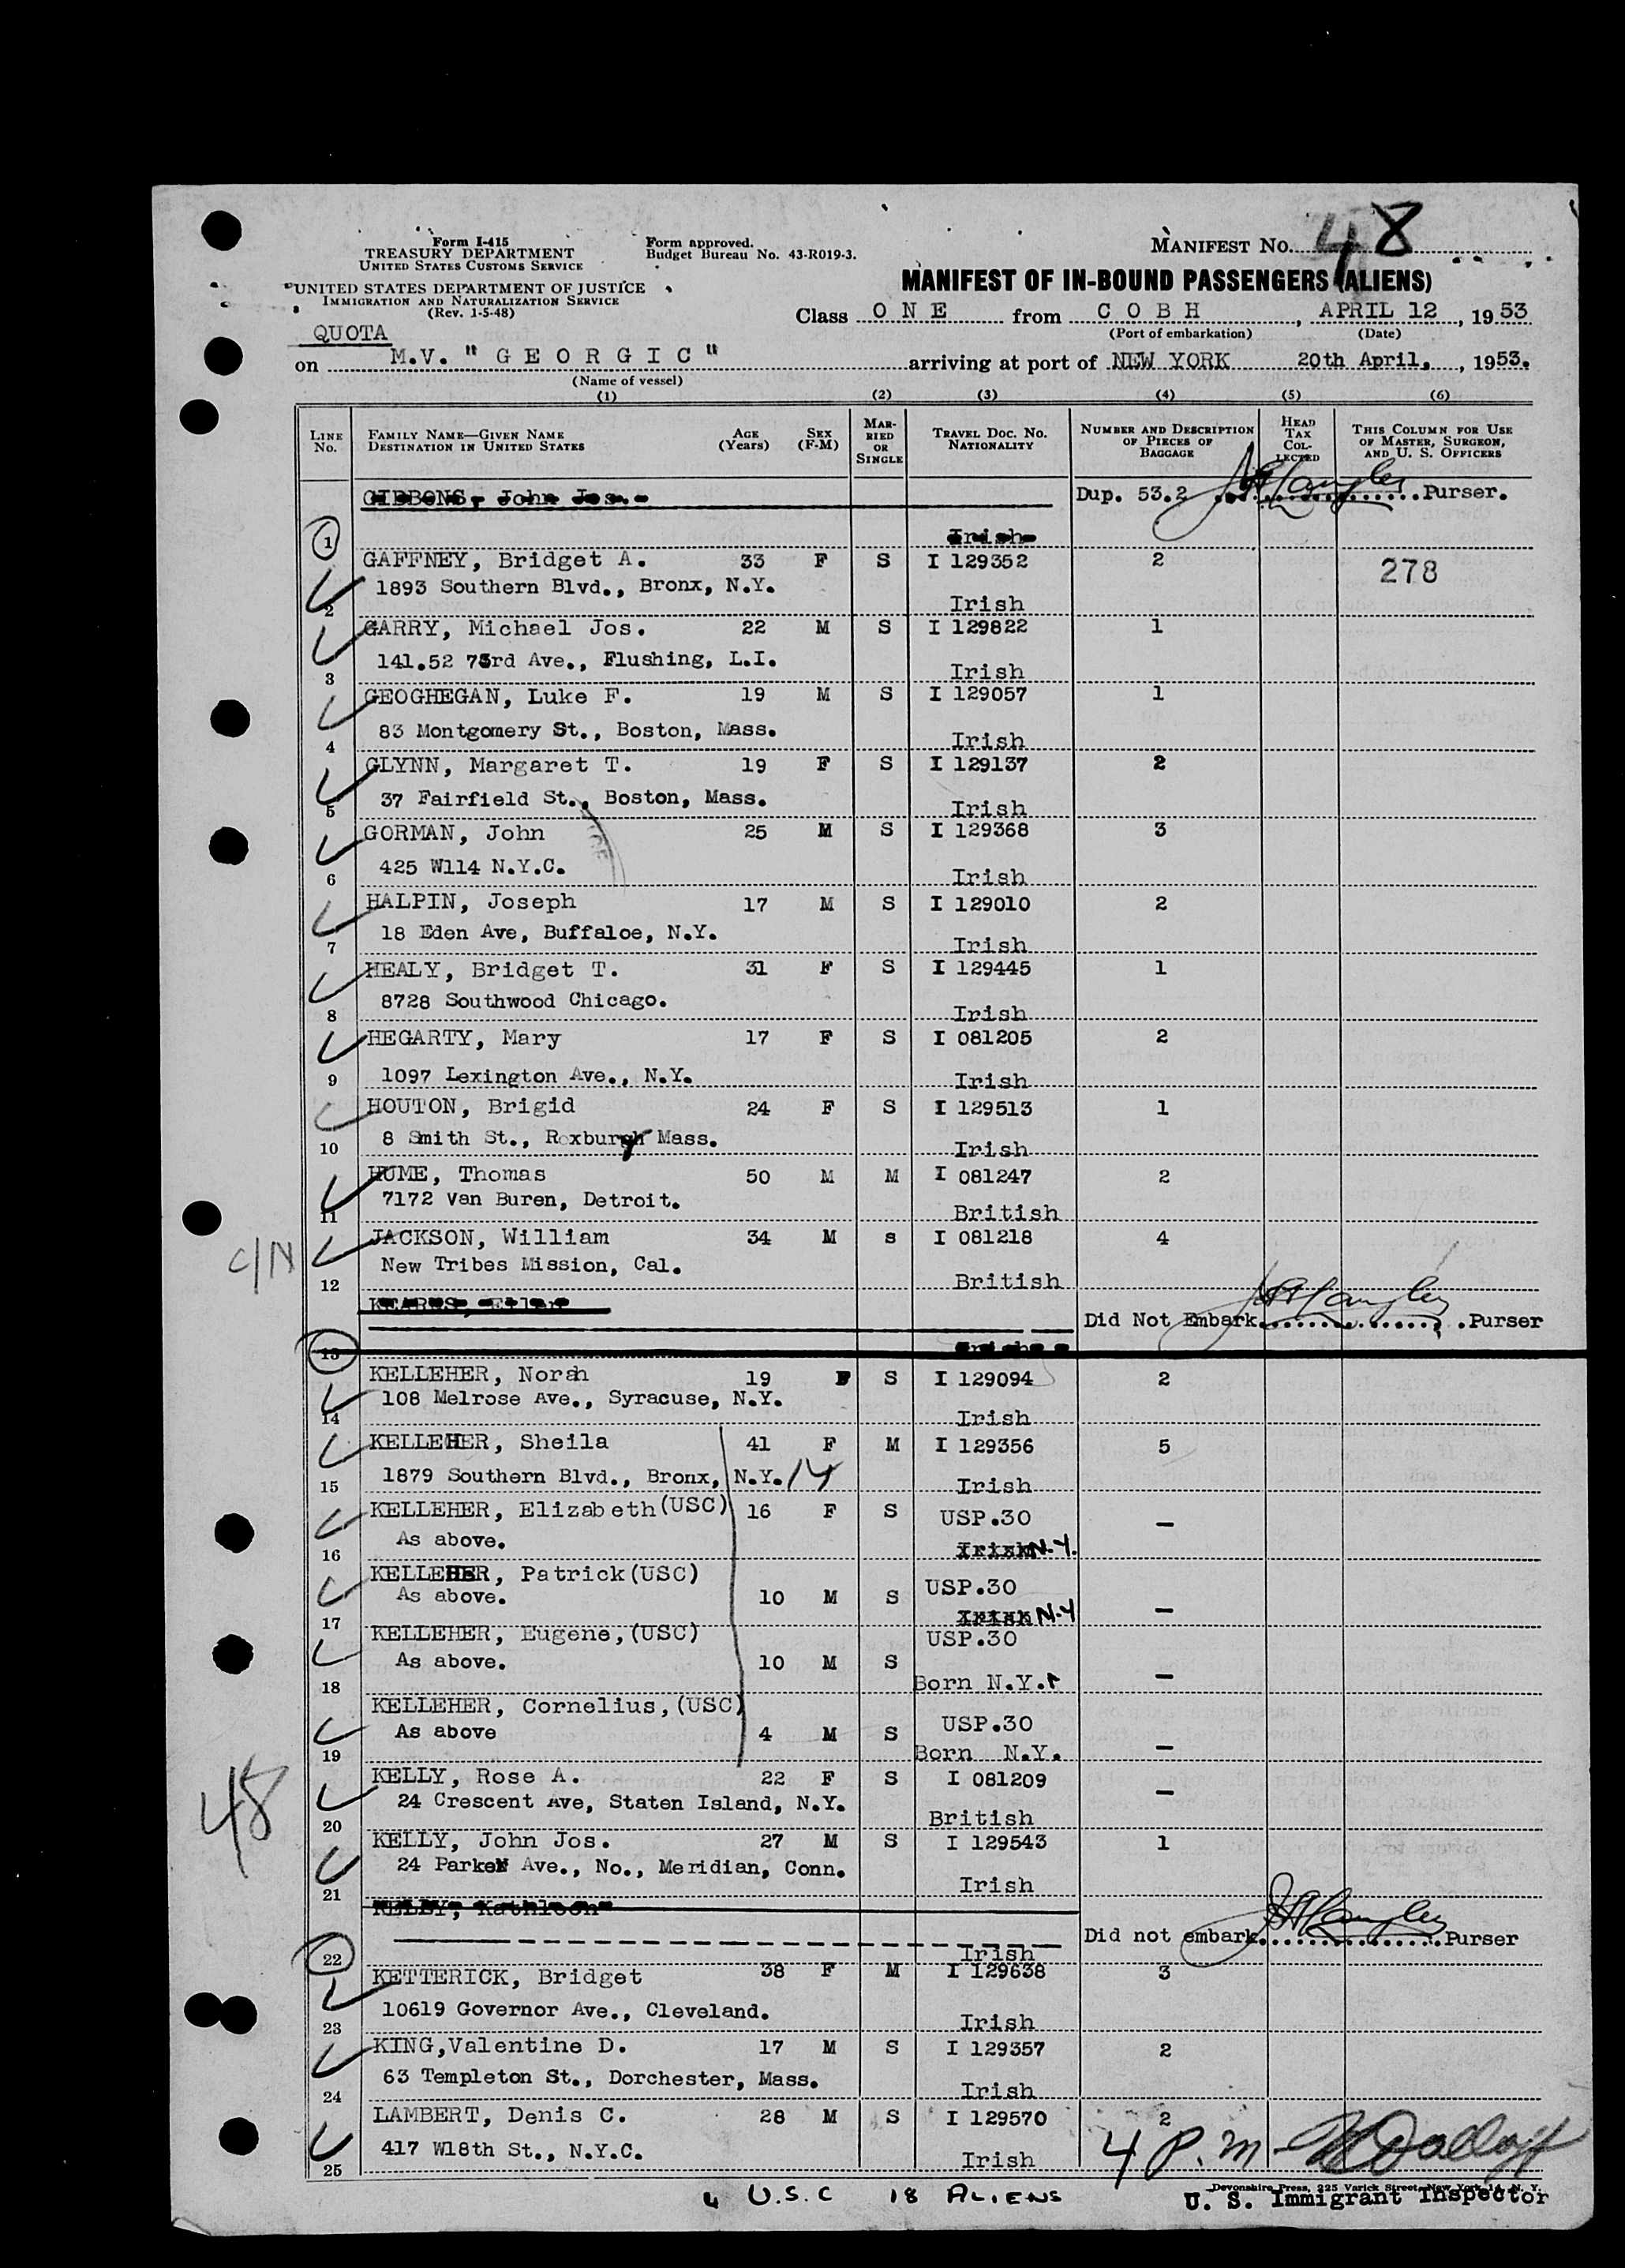 Form I-415
TREASURY DEPARTMENT
UNITED STATES CUSTOMS SERVICE
UNITED STATES DEPARTMENT OF JUSTICE
IMMIGRATION AND NATURALIZATION SERVICE
(Rev. 1-5-48)
Form approved.
Budget Bureau No. 43-R019-3.
MANIFEST No. 48
MANIFEST OF IN-BOUND PASSENGERS (ALIENS)
Class O N E from C O B H, APRIL 12, 1953
(Port of embarkation) (Date)
QUOTA
on M.V. " G E O R G I C " arriving at port of NEW YORK 20th April., 1953.
(Name of vessel)
(1) (2) (3) (4) (5) (6)
LINE No. FAMILY NAME—GIVEN NAME DESTINATION IN UNITED STATES AGE (Years) SEX (F-M) MARRIED OR SINGLE TRAVEL DOC. NO. NATIONALITY NUMBER AND DESCRIPTION OF PIECES OF BAGGAGE HEAD TAX COLLECTED THIS COLUMN FOR USE OF MASTER, SURGEON, AND U. S. OFFICERS
GIBBONS, John Jos. Dup. 53.2 Purser.
1 Irish
GAFFNEY, Bridget A. 33 F S I 129352 2 278
1893 Southern Blvd., Bronx, N.Y.
2 Irish
GARRY, Michael Jos. 22 M S I 129822 1
141.52 73rd Ave., Flushing, L.I.
3 Irish
GEOGHEGAN, Luke F. 19 M S I 129057 1
83 Montgomery St., Boston, Mass.
4 Irish
GLYNN, Margaret T. 19 F S I 129137 2
37 Fairfield St., Boston, Mass.
5 Irish
GORMAN, John 25 M S I 129368 3
425 W114 N.Y.C.
6 Irish
HALPIN, Joseph 17 M S I 129010 2
18 Eden Ave, Buffaloe, N.Y.
7 Irish
HEALY, Bridget T. 31 F S I 129445 1
8728 Southwood Chicago.
8 Irish
HEGARTY, Mary 17 F S I 081205 2
1097 Lexington Ave., N.Y.
9 Irish
HOUTON, Brigid 24 F S I 129513 1
8 Smith St., Roxbury Mass.
10 Irish
HUME, Thomas 50 M M I 081247 2
7172 Van Buren, Detroit.
11 British
C/N JACKSON, William 34 M s I 081218 4
New Tribes Mission, Cal.
12 British
KEARNS, Did Not Embark Purser
13 Irish
KELLEHER, Norah 19 F S I 129094 2
108 Melrose Ave., Syracuse, N.Y.
14 Irish
KELLEHER, Sheila 41 F M I 129356 5
1879 Southern Blvd., Bronx, N.Y. 14
15 Irish
KELLEHER, Elizabeth (USC) 16 F S USP.30 —
As above.
16 Irish N.Y.
KELLEHER, Patrick (USC)
As above. 10 M S USP.30 —
17 Irish N.Y
KELLEHER, Eugene, (USC) USP.30
As above. 10 M S —
18 Born N.Y.
KELLEHER, Cornelius, (USC)
As above 4 M S USP.30 —
19 Born N.Y.
KELLY, Rose A. 22 F S I 081209 —
48 24 Crescent Ave, Staten Island, N.Y.
20 British
KELLY, John Jos. 27 M S I 129543 1
24 Parker Ave., No., Meridian, Conn.
21 Irish
KELLY, Kathleen
Did not embark Purser
22 Irish
KETTERICK, Bridget 38 F M I 129638 3
10619 Governor Ave., Cleveland.
23 Irish
KING, Valentine D. 17 M S I 129357 2
63 Templeton St., Dorchester, Mass.
24 Irish
LAMBERT, Denis C. 28 M S I 129570 2
417 W18th St., N.Y.C. 4 P.M
25 Irish
4 U.S.C 18 ALIENS
Devonshire Press, 225 Varick Street, New York 14, N. Y.
U. S. Immigrant Inspector